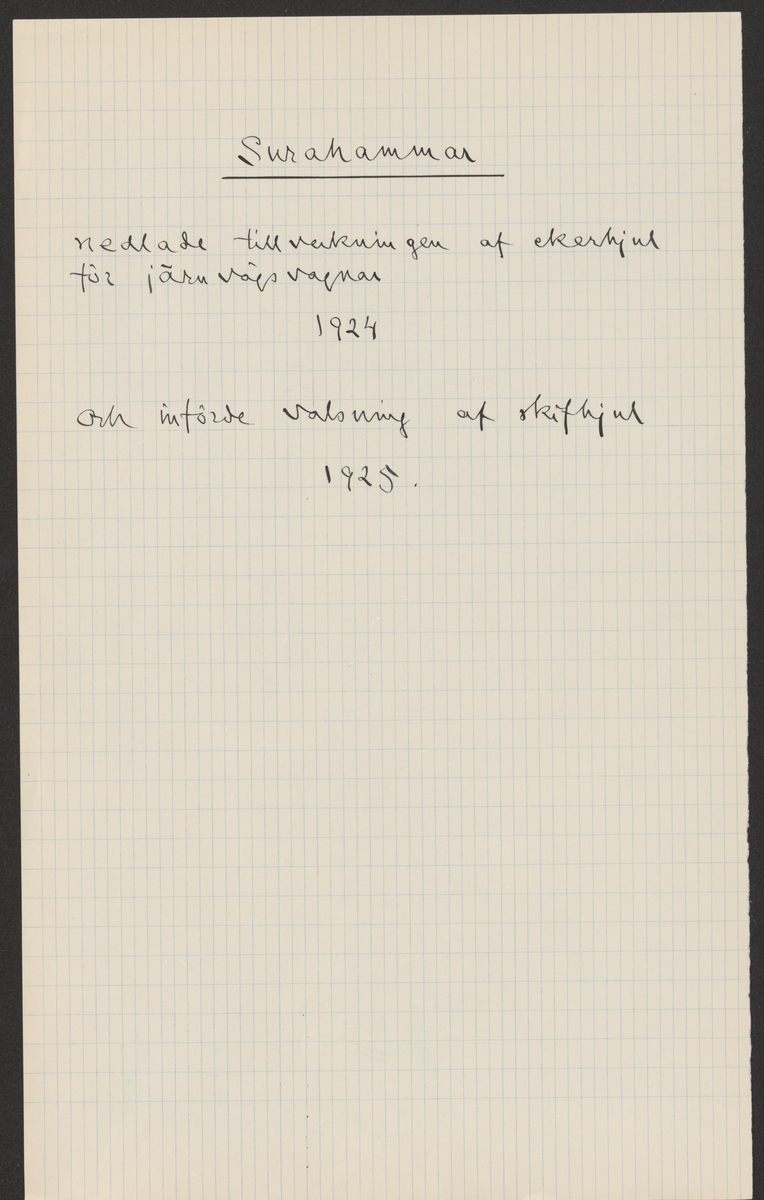 Surahammar
nedlade tillverkningen af ekerhjul
för järnvägsvagnar
1924
och införde valsning af skifhjul
1925.